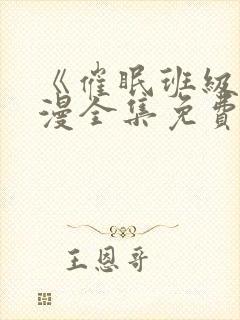 《催眠班级
漫全集免费
王恩哥